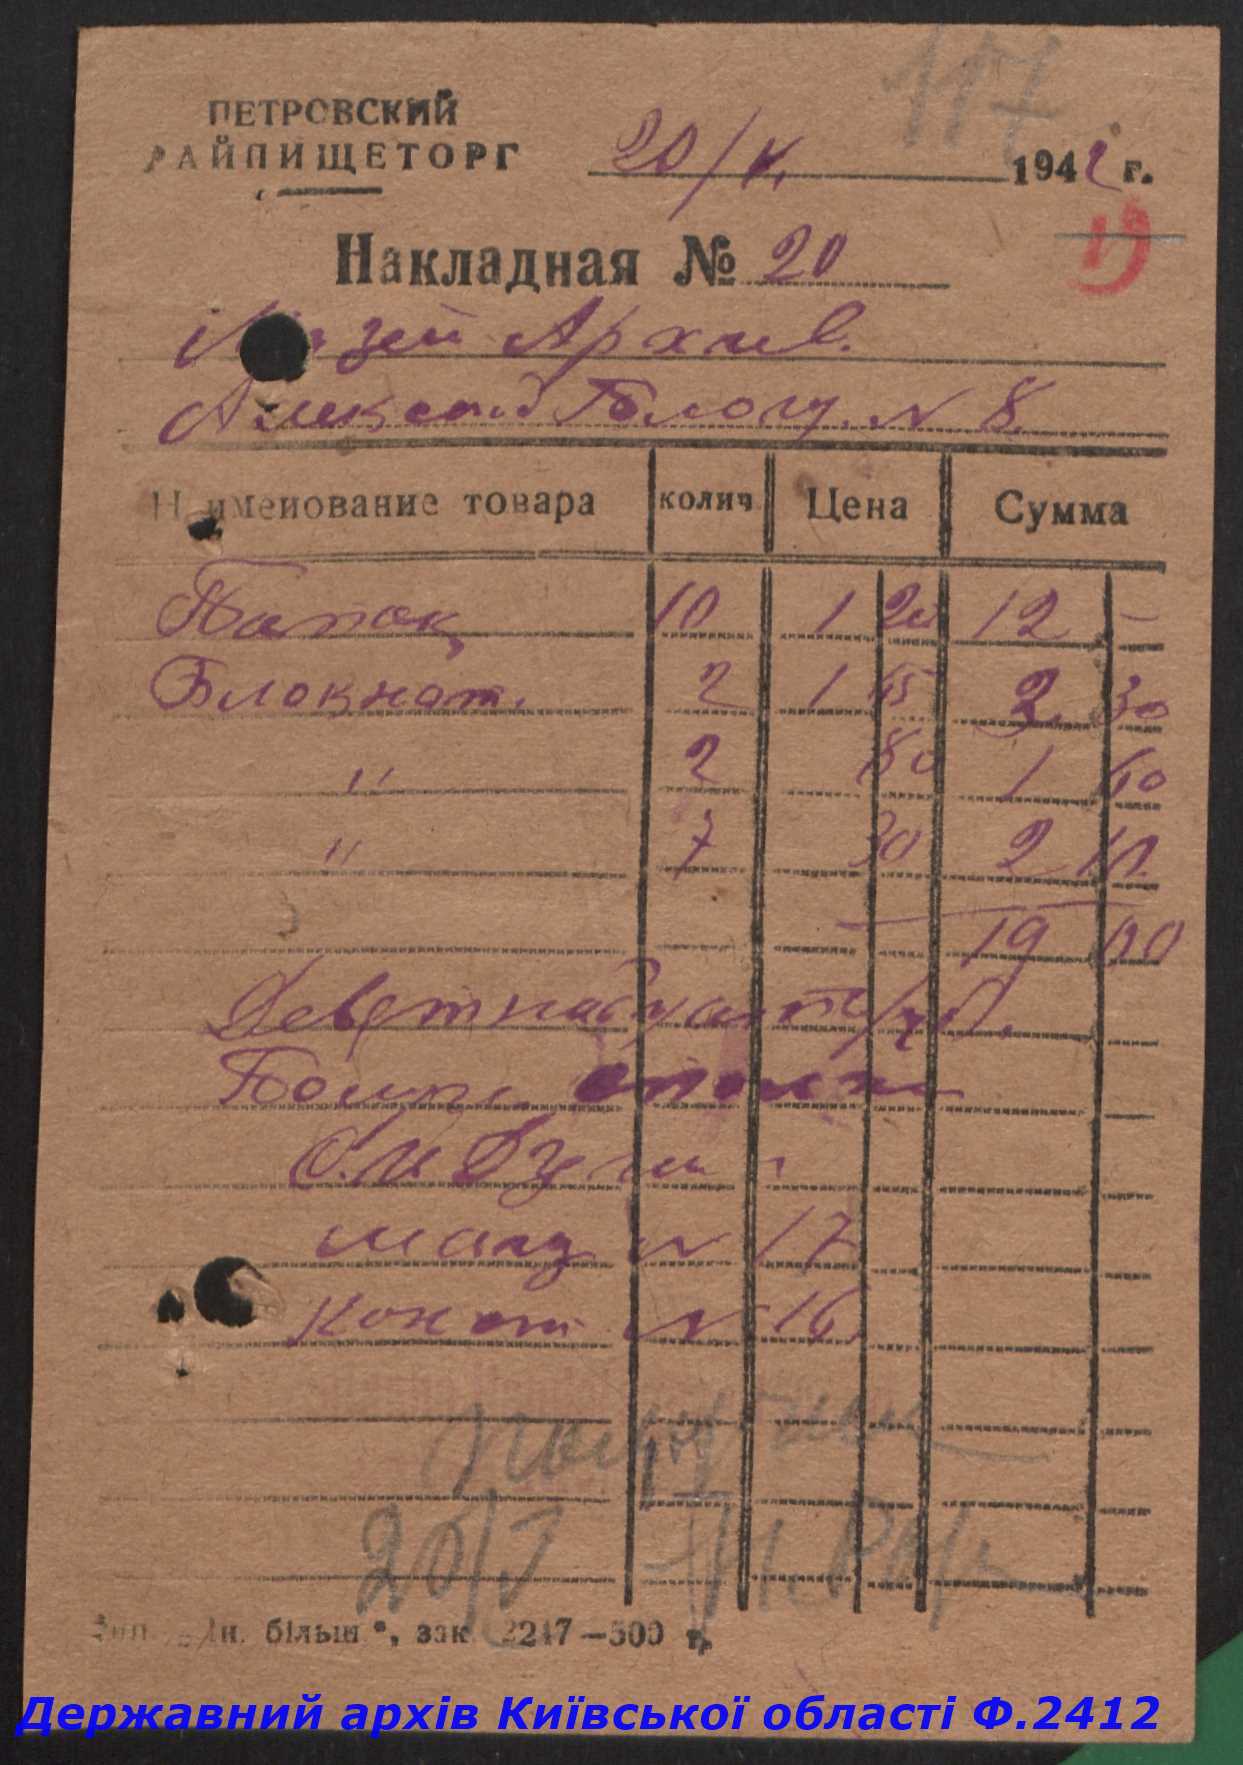 117
ПЕТРОВСКИЙ
РАЙПИЩЕТОРГ
20/V. 1942 г.
19
Накладная № 20
Музей Архив.
Александ Блогу. N 8.
Наименование товара колич. Цена Сумма
Папок 10 1 20 12 -
Блокнот. 2 1 15 2 30
" 2 80 1 60
" 7 30 2 10
19 00
Девятнадцать руб.
магаз N 17
N 16
20/V
більш", зак. 2247—500
Державний архів Київської області Ф.2412